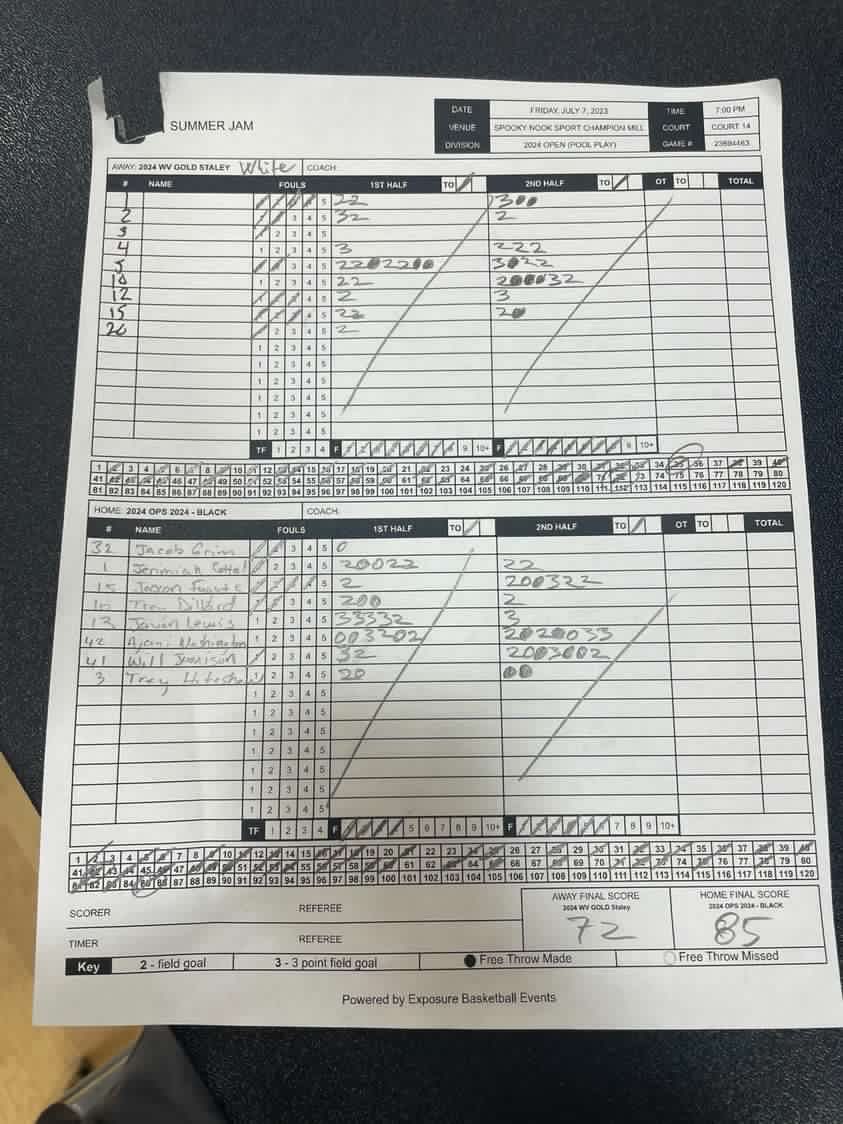 SUMMER JAM
DATE FRIDAY, JULY 7, 2023 TIME 7:00 PM
VENUE SPOOKY NOOK SPORT CHAMPION MILL COURT COURT 14
DIVISION 2024 OPEN (POOL PLAY) GAME # 23694463
AWAY: 2024 WV GOLD STALEY White COACH:
# NAME FOULS 1ST HALF TO 2ND HALF TO OT TO TOTAL
1 5 22 300
2 3 4 5 32 2
3 2 3 4 5
4 1 2 3 4 5 3 222
5 3 4 5 2202200 3022
10 1 2 3 4 5 22 200032
12 4 5 2 3
15 4 5 22 20
20 2 3 4 5 2
1 2 3 4 5
1 2 3 4 5
1 2 3 4 5
1 2 3 4 5
1 2 3 4 5
1 2 3 4 5
TF 1 2 3 4 F 9 10+ F 9 10+
1 2 3 4 5 6 7 8 9 10 11 12 13 14 15 16 17 18 19 20 21 22 23 24 25 26 27 28 29 30 31 32 33 34 35 36 37 38 39 40
41 42 43 44 45 46 47 48 49 50 51 52 53 54 55 56 57 58 59 60 61 62 63 64 65 66 67 68 69 70 71 72 73 74 75 76 77 78 79 80
81 82 83 84 85 86 87 88 89 90 91 92 93 94 95 96 97 98 99 100 101 102 103 104 105 106 107 108 109 110 111 112 113 114 115 116 117 118 119 120
HOME: 2024 OPS 2024 - BLACK COACH:
# NAME FOULS 1ST HALF TO 2ND HALF TO OT TO TOTAL
32 Jacob Grim 3 4 5 0
1 Jeremiah 2 3 4 5 20022 22
15 Jaxson 5 2 200322
10 Trey Dillard 3 4 5 200 2
13 Javan Lewis 1 2 3 4 5 33332 3
42 Ajani Washington 1 2 3 4 5 003202 2020033
41 Will Jamison 2 3 4 5 32 2003002
3 Trey 2 3 4 5 20 00
1 2 3 4 5
1 2 3 4 5
1 2 3 4 5
1 2 3 4 5
1 2 3 4 5
1 2 3 4 5
1 2 3 4 5
TF 1 2 3 4 F 5 6 7 8 9 10+ F 7 8 9 10+
1 2 3 4 5 6 7 8 9 10 11 12 13 14 15 16 17 18 19 20 21 22 23 24 25 26 27 28 29 30 31 32 33 34 35 36 37 38 39 40
41 42 43 44 45 46 47 48 49 50 51 52 53 54 55 56 57 58 59 60 61 62 63 64 65 66 67 68 69 70 71 72 73 74 75 76 77 78 79 80
81 82 83 84 85 86 87 88 89 90 91 92 93 94 95 96 97 98 99 100 101 102 103 104 105 106 107 108 109 110 111 112 113 114 115 116 117 118 119 120
SCORER REFEREE
TIMER REFEREE
AWAY FINAL SCORE
2024 WV GOLD Staley
72
HOME FINAL SCORE
2024 OPS 2024 - BLACK
85
Key 2 - field goal 3 - 3 point field goal Free Throw Made Free Throw Missed
Powered by Exposure Basketball Events